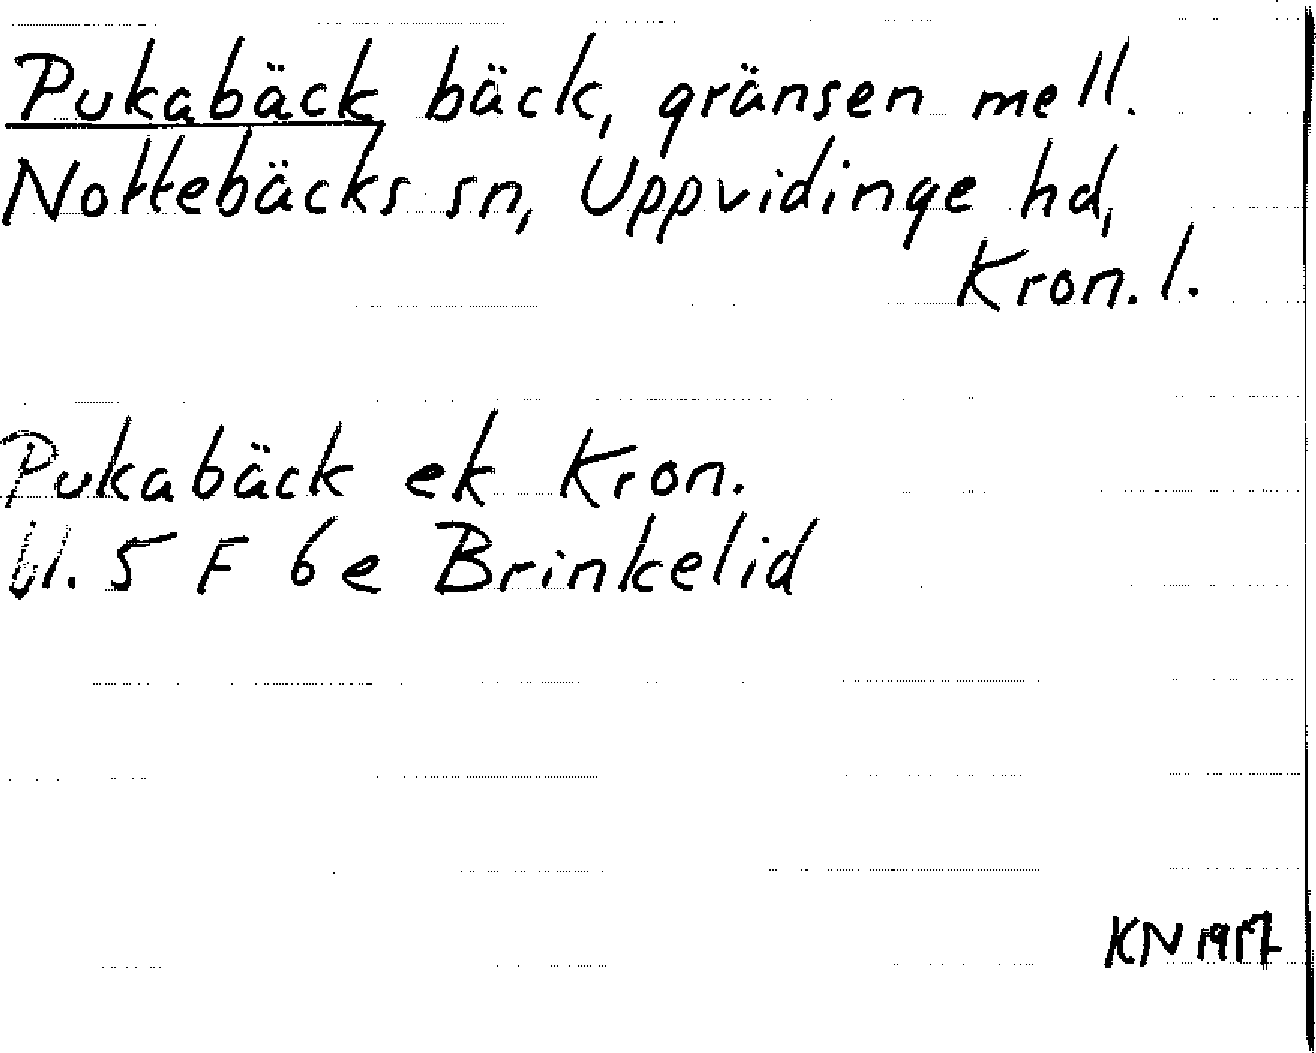 Pukabäck bäck, gränsen mell.
Nottebäcks sn, Uppvidinge hd,
Kron. l.
Pukabäck ek Kron.
bl. 5 F 6e Brinkelid
KN